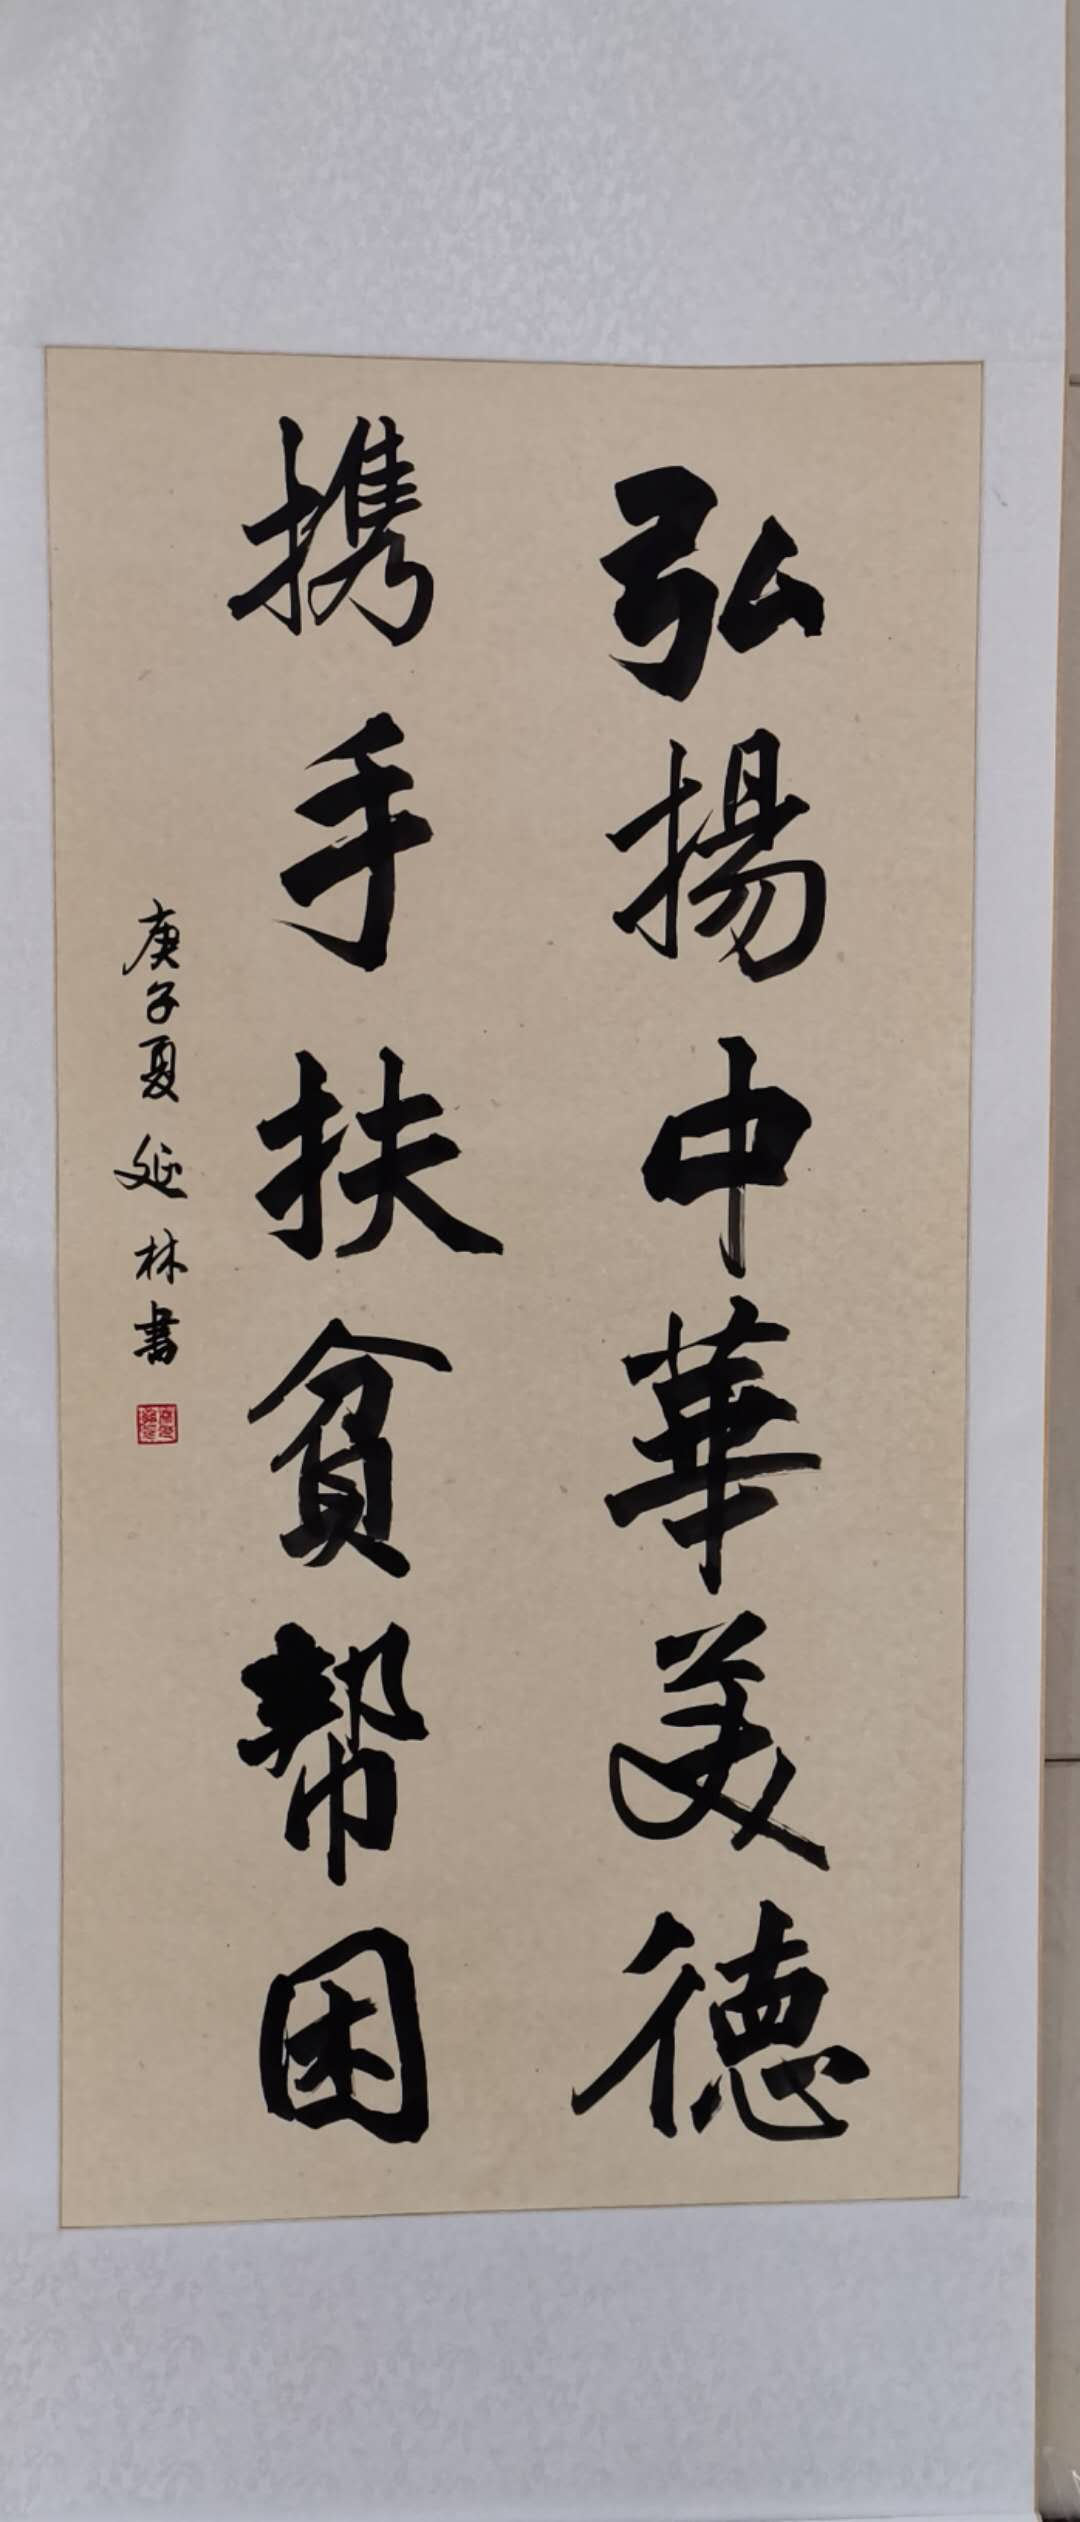 弘揚中華美德
携手扶贫帮困
庚子夏 延林書